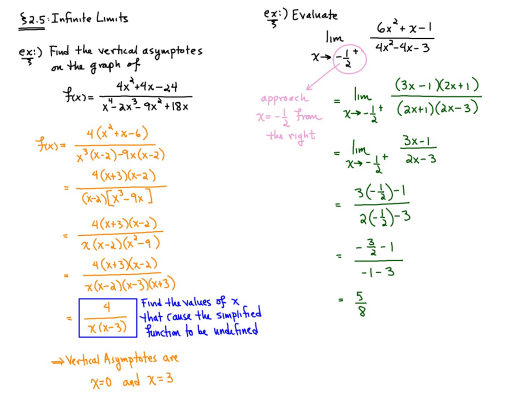 §2.5: Infinite Limits
ex:) Find the vertical asymptotes
on the graph of
f(x) = (4x²+4x-24)/(x⁴-2x³-9x²+18x)
f(x) = 4(x²+x-6)/(x³(x-2)-9x(x-2))
= 4(x+3)(x-2)/((x-2)[x³-9x])
= 4(x+3)(x-2)/(x(x-2)(x²-9))
= 4(x+3)(x-2)/(x(x-2)(x-3)(x+3))
= 4/(x(x-3)) Find the values of x
that cause the simplified
function to be undefined
⇒ Vertical Asymptotes are
x=0 and x=3
ex:) Evaluate
lim x→-1/2⁺ (6x²+x-1)/(4x²-4x-3)
approach
x=-1/2 from
the right
= lim x→-1/2⁺ (3x-1)(2x+1)/((2x+1)(2x-3))
= lim x→-1/2⁺ (3x-1)/(2x-3)
= (3(-1/2)-1)/(2(-1/2)-3)
= (-3/2-1)/(-1-3)
= 5/8